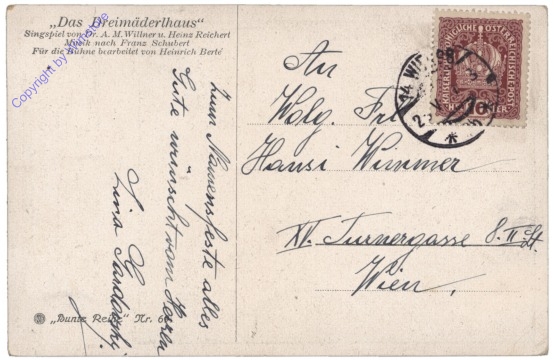 „Das Dreimäderlhaus"
Singspiel von Dr. A. M. Willner u. Heinz Reichert
Musik nach Franz Schubert
Für die Bühne bearbeitet von Heinrich Berté
Zum Namensfeste alles
Gute wünscht vom Herzen
Lina
An
Wolg. Frl
Hansi Wimmer
XV. Turnergasse 8. II St.
Wien,
KAISERLICHE KÖNIGLICHE ÖSTERREICHISCHE POST
HELLER
14 WIEN
„Bunte Reihe" Nr.
Copyright by